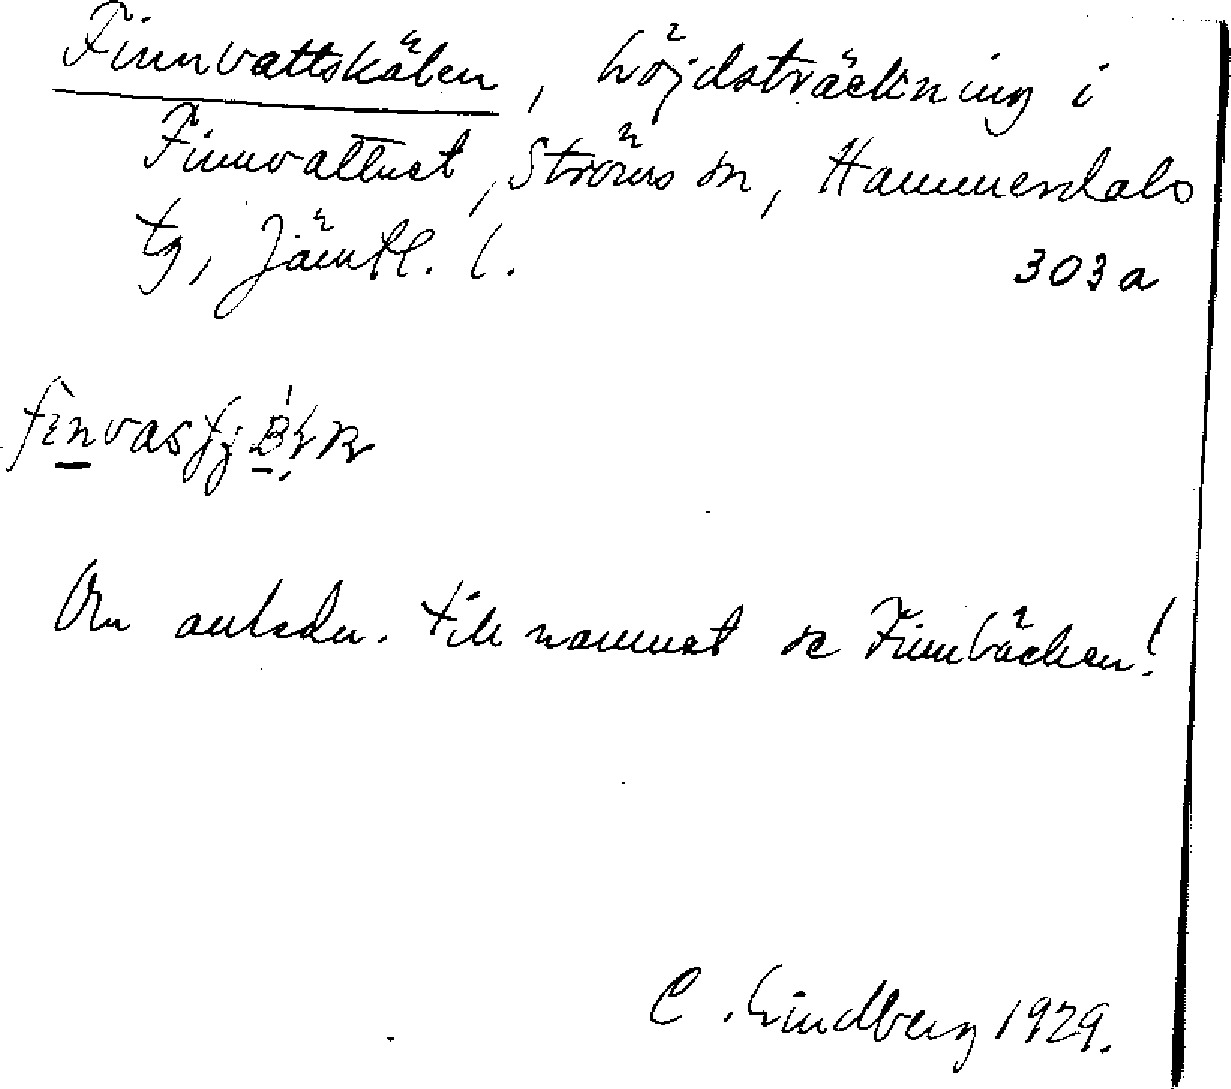 Finnvattskälen, höjdsträckning i
Finnvattnet, Ströms sn, Hammerdals
tg, Jämtl. l.
303a
Om anledn. till namnet se Finnbäcken!
C. Lindberg 1929.